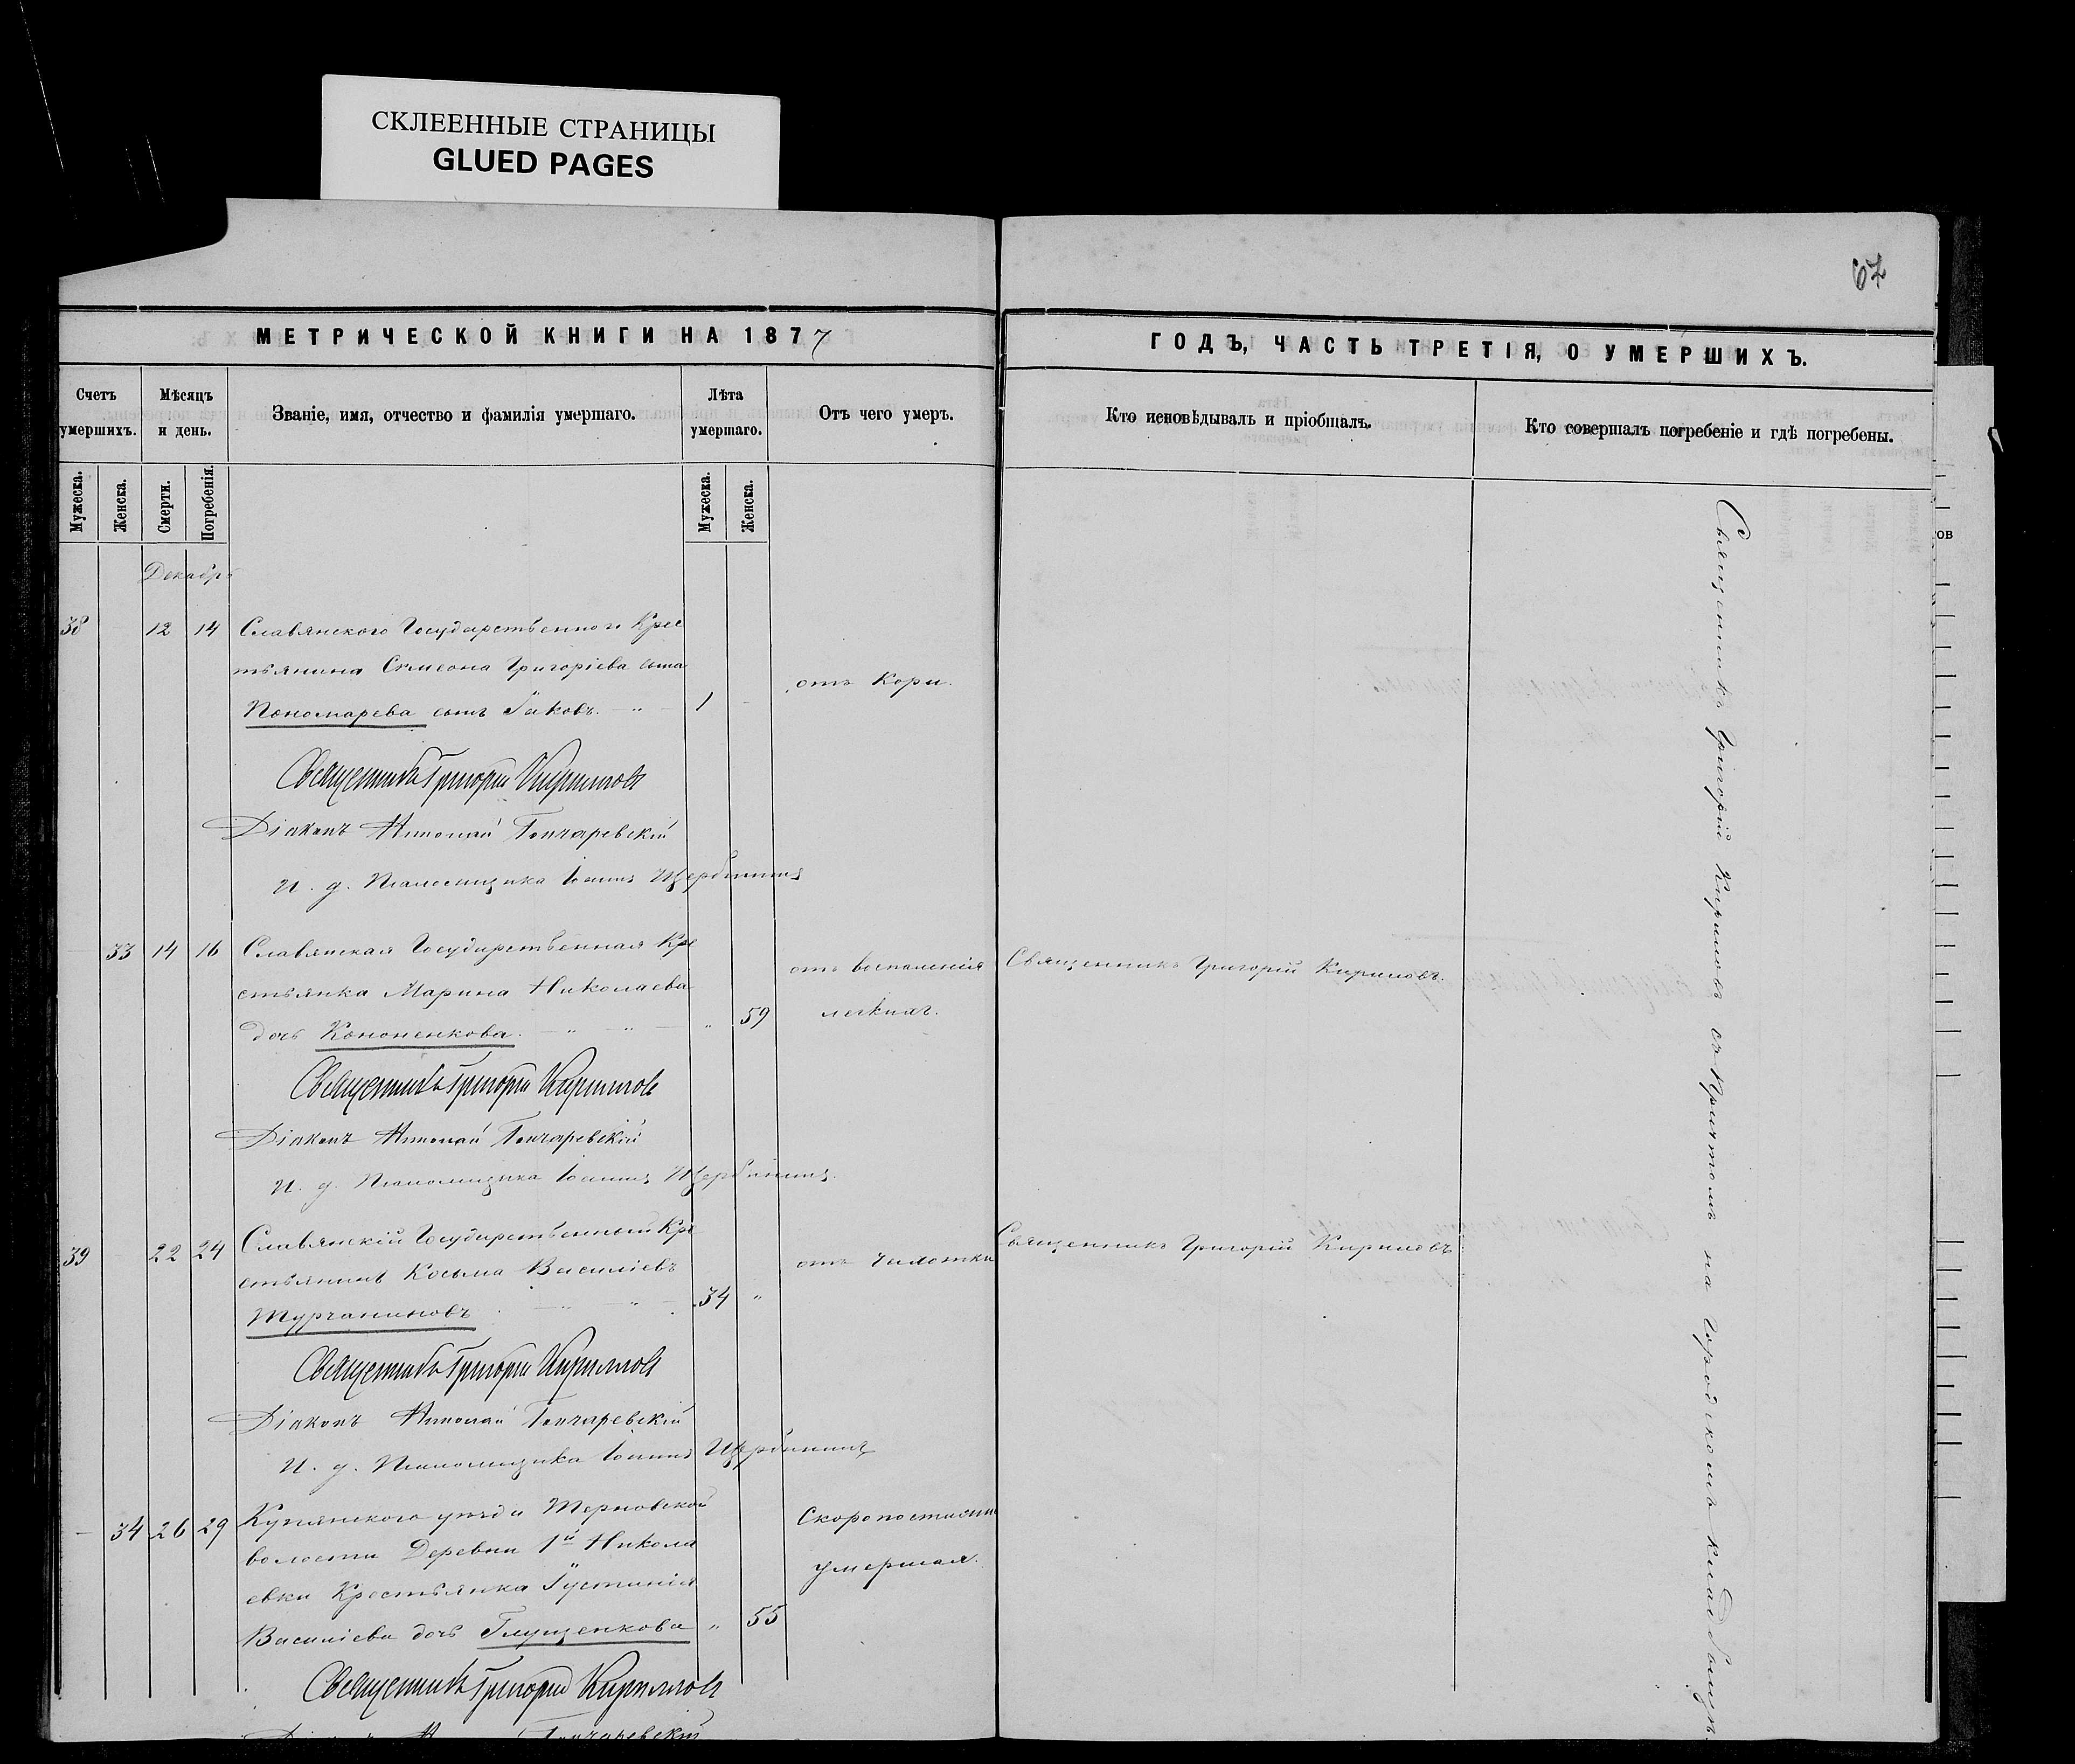 СКЛЕЕННЫЕ СТРАНИЦЫ
GLUED PAGES
67
МЕТРИЧЕСКОЙ КНИГИ НА 1877
ГОДЪ, ЧАСТЬ ТРЕТІЯ, О УМЕРШИХЪ.
Счетъ умершихъ.
Мѣсяцъ и день.
Званіе, имя, отчество и фамилія умершаго.
Лѣта умершаго.
Отъ чего умеръ.
Кто исповѣдывалъ и пріобщалъ.
Кто совершалъ погребеніе и гдѣ погребены.
Мужеска.
Женска.
Смерти.
Погребенія.
Мужеска.
Женска.
Декабрь
38 12 14 Славянского Государственного Крес
тьянина Симеона Григоріева сына
Пономарева сынъ Іаковъ. 1 отъ Кори.
Священникъ Григорій Кириловъ
Діаконъ Николай Гончаревскій
И. д. Псаломщика Іоаннъ Щербининъ
33 14 16 Славянская Государственная Кре
стьянка Марина Николаева
дочь Кононенкова. " 59
отъ воспаленія
легкихъ.
Священникъ Григорій Кириловъ.
Священникъ Григорій Кириловъ
Діаконъ Николай Гончаревскій
И. д. Псаломщика Іоаннъ Щербининъ.
39 22 24 Славянскій Государственный Кре
стьянинъ Косьма Василіевъ
Турчаниновъ 34 "
отъ Чахотки
Священникъ Григорій Кириловъ
Священникъ Григорій Кириловъ
Діаконъ Николай Гончаревскій
И. д. Псаломщика Іоаннъ Щербининъ
34 26 29 Купянского уѣзда Терновской
волости Деревни 1й Никола
евки Крестьянка Іустинія
Василіева дочь Глущенкова " 55
Скоропостижно
умершая.
Священникъ Григорій Кириловъ
Діаконъ Николай Гончаревскій
Священникъ Григорій Кириловъ съ Причтомъ на Городскомъ кладбищѣ.
ов